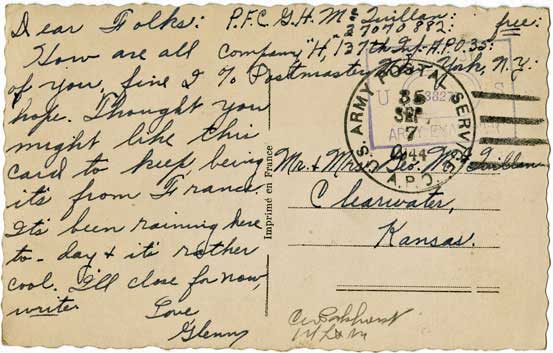 Dear Folks:
How are all
of you, fine I
hope. Thought you
might like this
card to keep being
it's from France.
It's been raining here
to-day & it's rather
cool. I'll close for now,
write.
Love
Glenn
P.F.C. G.H. McQuillan: free:
37070882:
Company "H," 137th Inf. A.P.O. 35:
% Postmaster New York, N.Y:
U.S. ARMY POSTAL SERVICE
35
SEP
7
1944
A.P.O.
U S
ARMY EXAMINER
Mr. & Mrs. Geo. McQuillan
Clearwater,
Kansas.
Imprimé en France